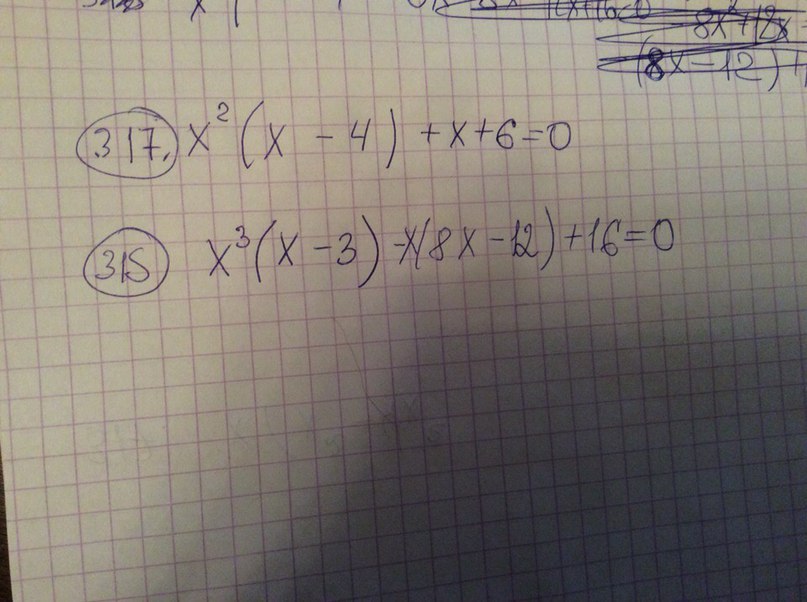 8x²+12x
(8x-12)
317. x²(x-4)+x+6=0
315 x³(x-3)-x(8x-12)+16=0